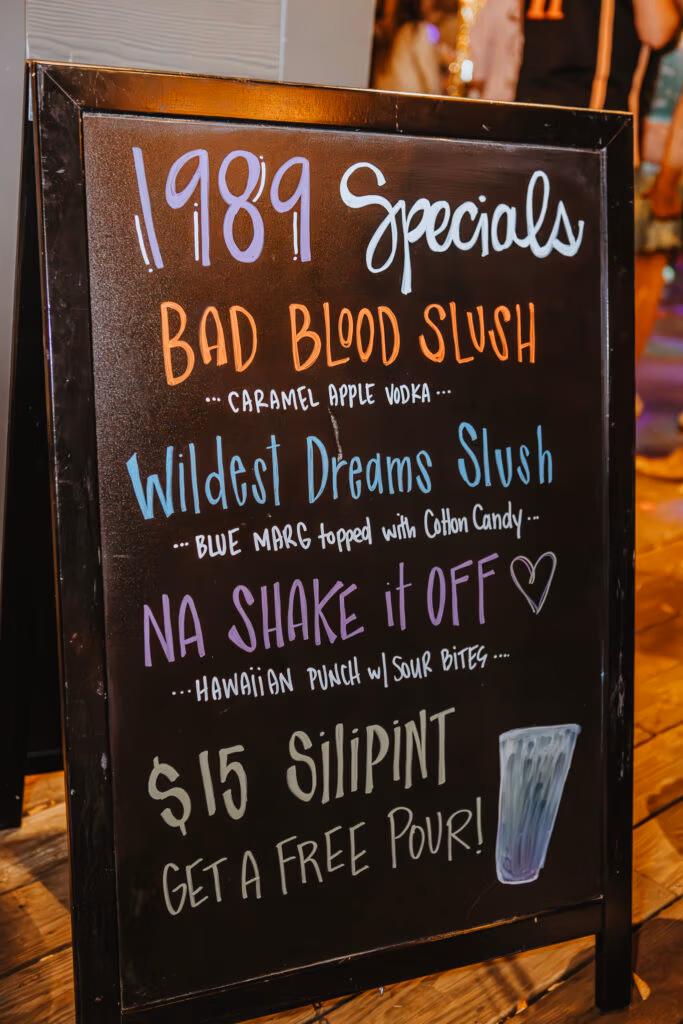 1989 Specials
BAD BLOOD SLUSH
... CARAMEL APPLE VODKA ...
Wildest Dreams Slush
... BLUE MARG topped with Cotton Candy ...
NA SHAKE it OFF
... HAWAIIAN PUNCH w/ SOUR BITES ....
$15 SILIPINT
GET A FREE POUR!